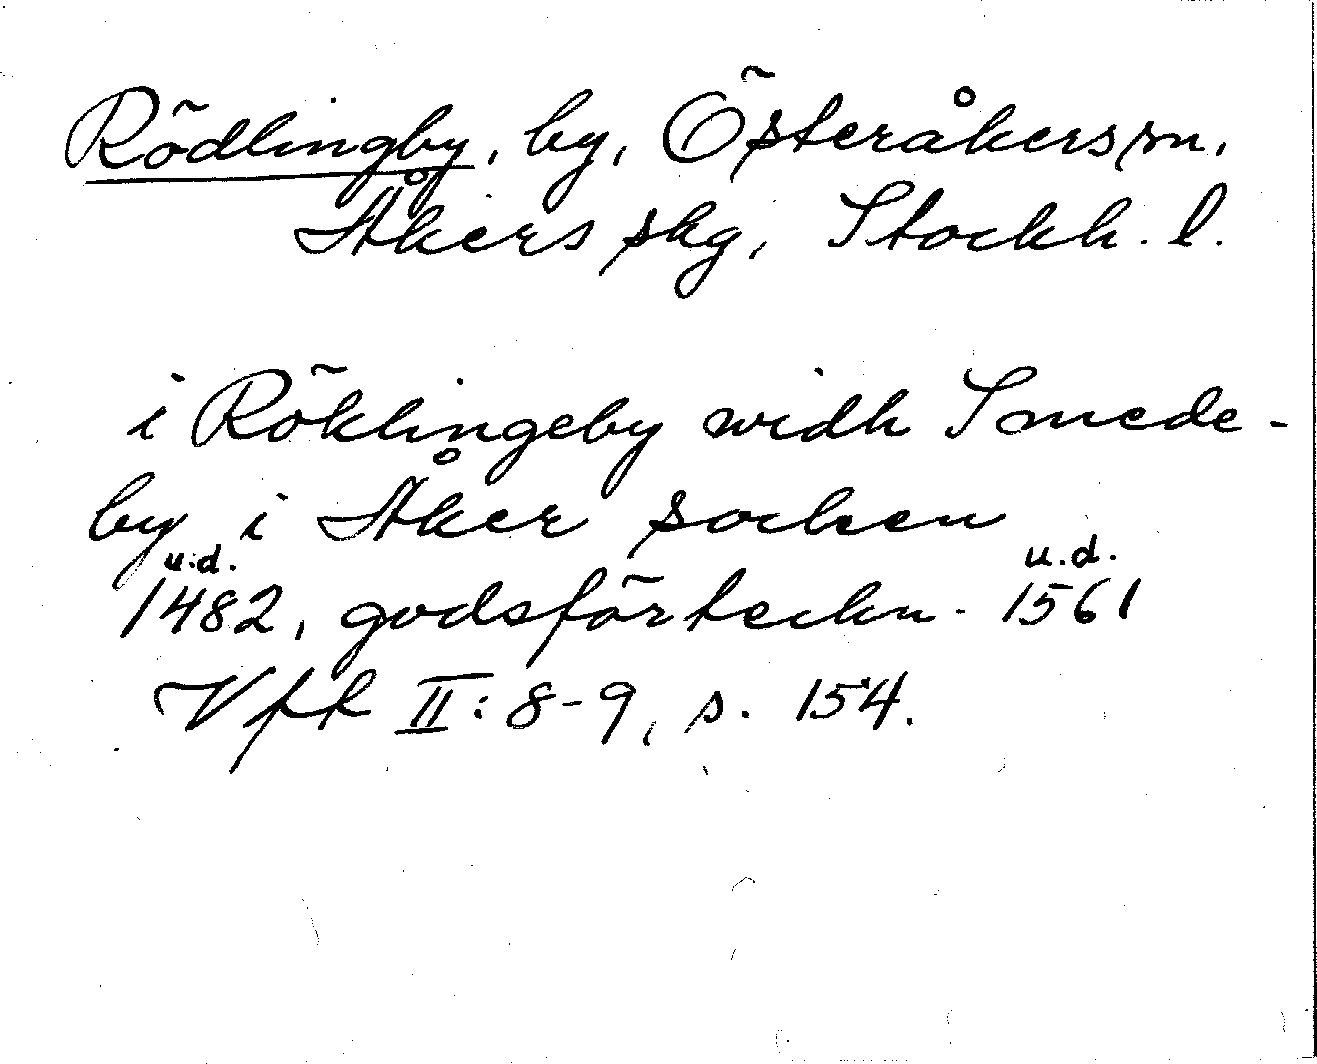 Rödlingby, by, Österåkers sn,
Åkers skg, Stockh. l.
i Röklingeby widh Smede-
by i Åker socken
u.d. u.d.
1482, godsförteckn. 1561
Vfk II: 8-9, s. 154.